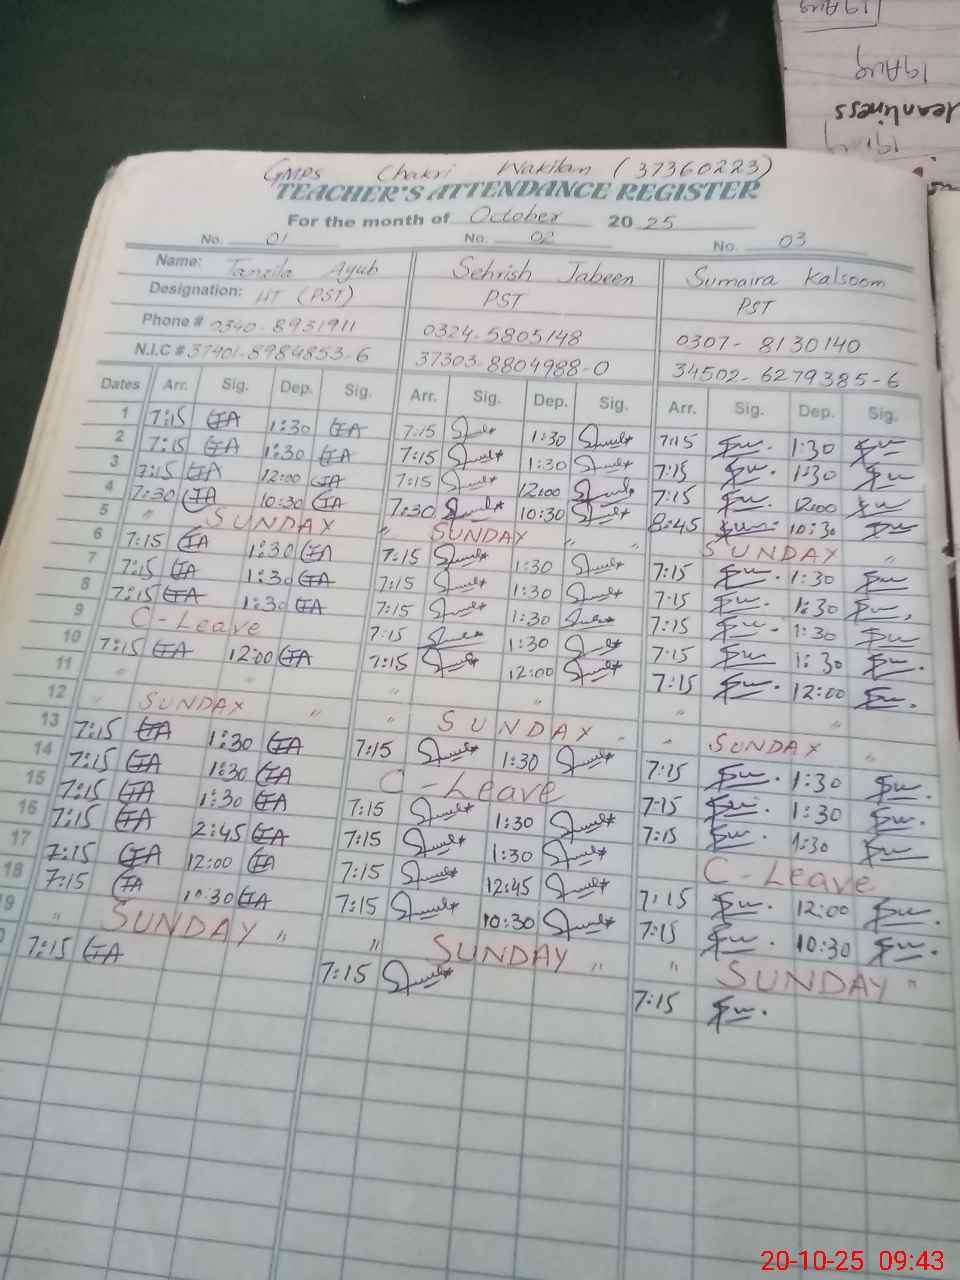 19 Aug
19 Aug
GMPS Chakri Wakilan (37360223)
TEACHER'S ATTENDANCE REGISTER
For the month of October 20 25
No. 01 No. 02 No. 03
Name: Tanzila Ayub Sehrish Jabeen Sumaira Kalsoom
Designation: HT (PST) PST PST
Phone # 0340-8931911 0324-5805148 0307-8130140
N.I.C # 37401-8984853-6 37303-8804988-0 34502-6279385-6
Dates Arr. Sig. Dep. Sig. Arr. Sig. Dep. Sig. Arr. Sig. Dep. Sig.
1 7:15 TA 1:30 TA 7:15 1:30 7:15 1:30
2 7:15 TA 1:30 TA 7:15 1:30 7:15 1:30
3 7:15 TA 12:00 TA 7:15 12:00 7:15 12:00
4 7:30 TA 10:30 TA 7:30 10:30 8:45 10:30
5 " SUNDAY " SUNDAY " " SUNDAY "
6 7:15 TA 1:30 TA 7:15 1:30 7:15 1:30
7 7:15 TA 1:30 TA 7:15 1:30 7:15 1:30
8 7:15 TA 1:30 TA 7:15 1:30 7:15 1:30
9 C-Leave 7:15 1:30 7:15 1:30
10 7:15 TA 12:00 TA 7:15 12:00 7:15 12:00
11 " " " " " "
12 " SUNDAY " " SUNDAY " " SUNDAY "
13 7:15 TA 1:30 TA 7:15 1:30 7:15 1:30
14 7:15 TA 1:30 TA C-Leave 7:15 1:30
15 7:15 TA 1:30 TA 7:15 1:30 7:15 1:30
16 7:15 TA 2:45 TA 7:15 1:30 C-Leave
17 7:15 TA 12:00 TA 7:15 12:45 7:15 12:00
18 7:15 TA 10:30 TA 7:15 10:30 7:15 10:30
19 " SUNDAY " " SUNDAY " " SUNDAY "
7:15 TA 7:15 7:15
20-10-25 09:43